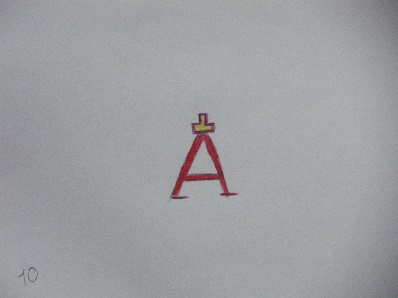 A
10